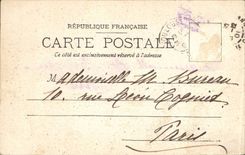 RÉPUBLIQUE FRANÇAISE
CARTE POSTALE
Ce côté est exclusivement réservé à l'adresse
Mademoiselle M. Bureau
10. rue Léon Cogniet
Paris